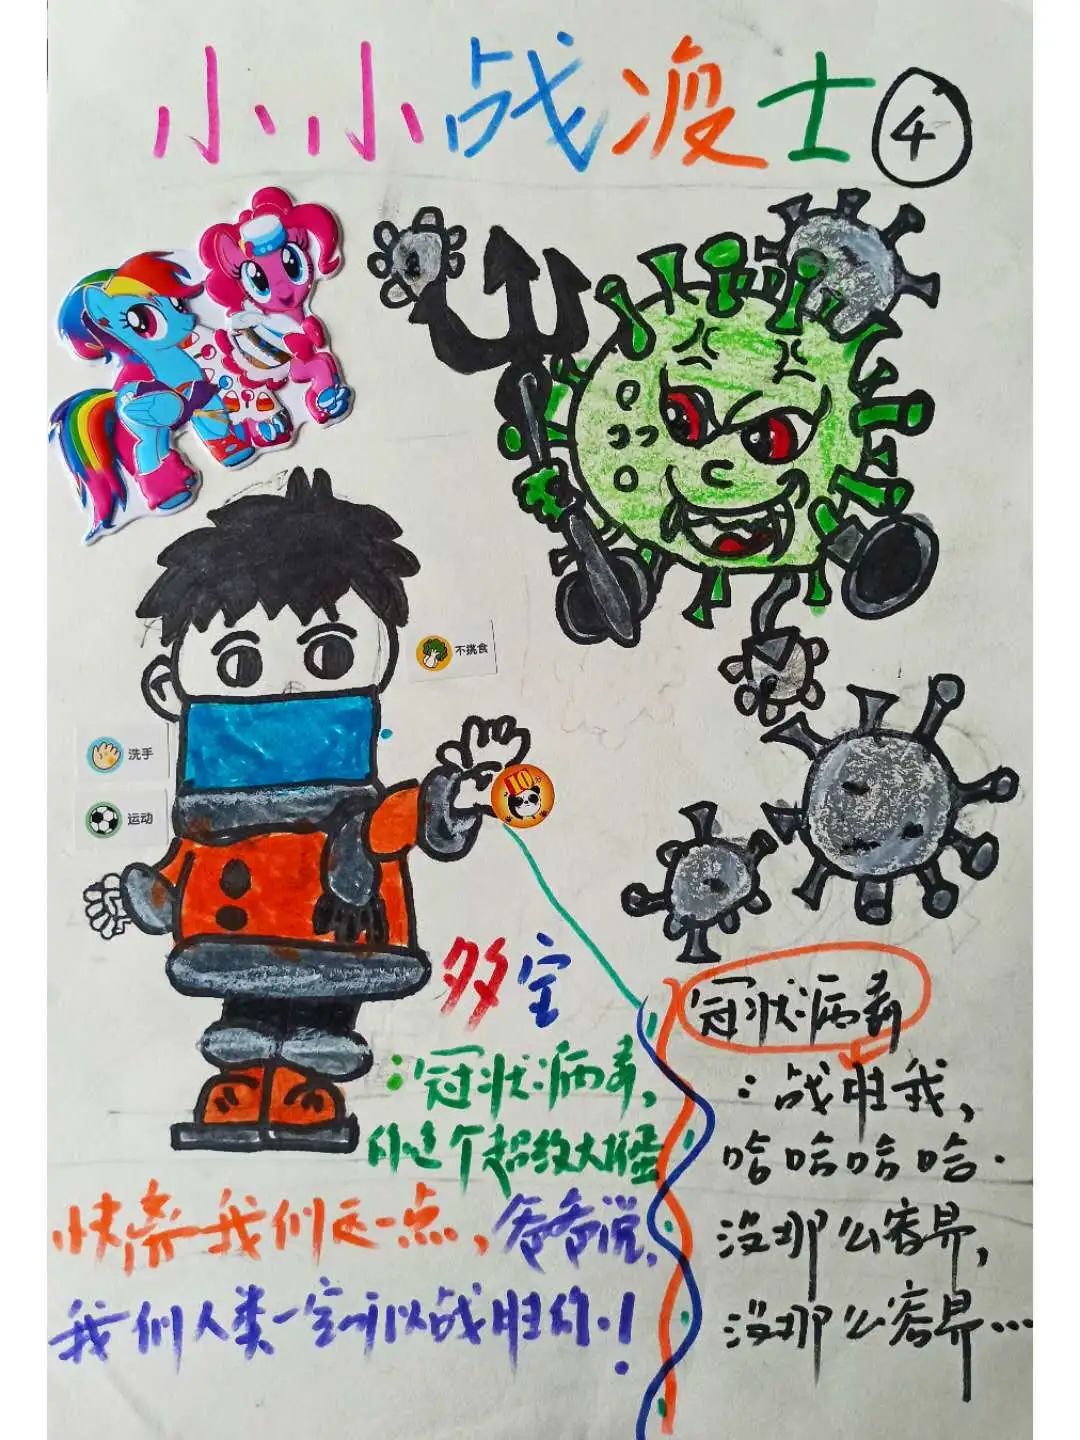 小小战疫士④
不挑食
洗手
运动
10
多宝
：冠状病毒，
你这个超级大蛋
快离我们远一点，爸爸说，
我们人类一定可以战胜你！
冠状病毒
：战胜我，
哈哈哈哈.
没那么容易，
没那么容易…